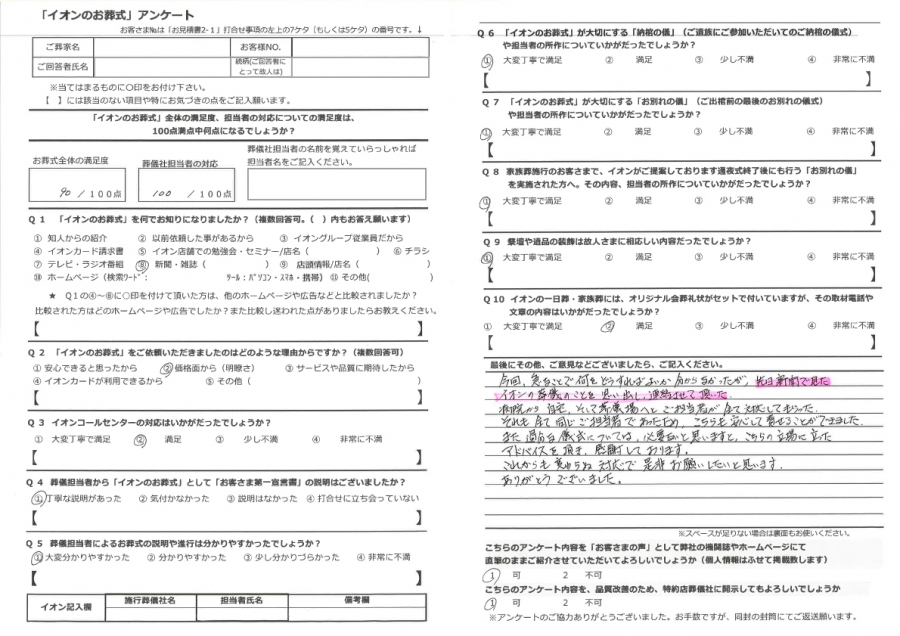 「イオンのお葬式」アンケート
お客さま№は「お見積書2-1」打合せ事項の左上の7ケタ（もしくは5ケタ）の番号です。↓
ご葬家名
お客様NO.
ご回答者氏名
続柄(ご回答者にとって故人は)
※当てはまるものに〇印をお付け下さい。
【　】には該当のない項目や特にお気づきの点をご記入願います。
「イオンのお葬式」全体の満足度、担当者の対応についての満足度は、
100点満点中何点になるでしょうか？
お葬式全体の満足度
葬儀社担当者の対応
葬儀社担当者の名前を覚えていらっしゃれば
担当者名をご記入ください。
90 / 100点
100 / 100点
Q 1 「イオンのお葬式」を何でお知りになりましたか？（複数回答可。（　）内もお答え願います）
① 知人からの紹介 ② 以前依頼した事があるから ③ イオングループ従業員だから
④ イオンカード請求書 ⑤ イオン店舗での勉強会・セミナー/店名（　　　） ⑥ チラシ
⑦ テレビ・ラジオ番組 ⑧ 新聞・雑誌（　　　） ⑨ 店頭情報/店名（　　　）
⑩ ホームページ（検索ﾜｰﾄﾞ：　　　ﾂｰﾙ：ﾊﾟｿｺﾝ・ｽﾏﾎ・携帯） ⑪ その他(　　　)
★ Q1の④～⑧に〇印を付けて頂いた方は、他のホームページや広告などと比較されましたか？
比較された方はどのホームページや広告でしたか？また比較し迷われた点がありましたらお教えください。
【　】
Q 2 「イオンのお葬式」をご依頼いただきましたのはどのような理由からですか？（複数回答可）
① 安心できると思ったから ② 価格面から（明瞭さ） ③ サービスや品質に期待したから
④ イオンカードが利用できるから ⑤ その他（　　　）
【　】
Q 3 イオンコールセンターの対応はいかがだったでしょうか？
① 大変丁寧で満足 ② 満足 ③ 少し不満 ④ 非常に不満
【　】
Q 4 葬儀担当者から「イオンのお葬式」として「お客さま第一宣言書」の説明はございましたか？
① 丁寧な説明があった ② 気付かなかった ③ 説明はなかった ④ 打合せに立ち会っていない
【　】
Q 5 葬儀担当者によるお葬式の説明や進行は分かりやすかったでしょうか？
① 大変分かりやすかった ② 分かりやすかった ③ 少し分かりづらかった ④ 非常に不満
【　】
イオン記入欄
施行葬儀社名
担当者氏名
備考欄
Q 6 「イオンのお葬式」が大切にする「納棺の儀」（ご遺族にご参加いただいてのご納棺の儀式）
や担当者の所作についていかがだったでしょうか？
① 大変丁寧で満足 ② 満足 ③ 少し不満 ④ 非常に不満
【　】
Q 7 「イオンのお葬式」が大切にする「お別れの儀」（ご出棺前の最後のお別れの儀式）
や担当者の所作についていかがだったでしょうか？
① 大変丁寧で満足 ② 満足 ③ 少し不満 ④ 非常に不満
【　】
Q 8 家族葬施行のお客さまで、イオンがご提案しております通夜式終了後にも行う「お別れの儀」
を実施された方へ。その内容、担当者の所作についていかがだったでしょうか？
① 大変丁寧で満足 ② 満足 ③ 少し不満 ④ 非常に不満
【　】
Q 9 祭壇や遺品の装飾は故人さまに相応しい内容だったでしょうか？
① 大変丁寧で満足 ② 満足 ③ 少し不満 ④ 非常に不満
【　】
Q 10 イオンの一日葬・家族葬には、オリジナル会葬礼状がセットで付いていますが、その取材電話や
文章の内容はいかがだったでしょうか？
① 大変丁寧で満足 ② 満足 ③ 少し不満 ④ 非常に不満
【　】
最後にその他、ご意見などございましたら、ご記入ください。
今回、急なことで何をどうすればよいか分からなかったが、先日新聞で見た
イオンの葬儀のことを思い出し、連絡させて頂いた。
病院から自宅、そして葬儀場へとご担当者が全て対応してもらった。
それも全て同じご担当者であったため、こちらも安心して任せることができました。
また過分な儀式については、必要ないと思いますと、こちらの立場に立った
アドバイスを頂き、感謝しております。
これからも変わらぬ対応で是非お願いしたいと思います。
ありがとうございました。
※スペースが足りない場合は裏面もお使いください。
こちらのアンケート内容を「お客さまの声」として弊社の機関誌やホームページにて
直筆のままご紹介させていただいてよろしいでしょうか（個人情報はふせて掲載致します）
1 可 2 不可
こちらのアンケート内容を、品質改善のため、特約店葬儀社に開示してもよろしいでしょうか
1 可 2 不可
※アンケートのご協力ありがとうございました。お手数ですが、同封の封筒にてご返送願います。